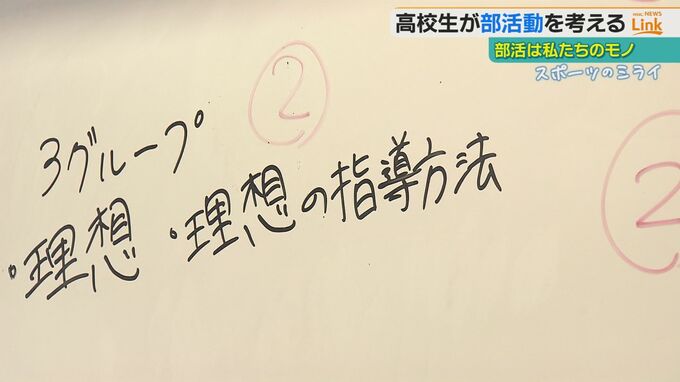 高校生が部活動を考える
NEWS
Link
部活は私たちのモノ
スポーツのミライ
②
3グループ
・理想 ・理想の指導方法
②